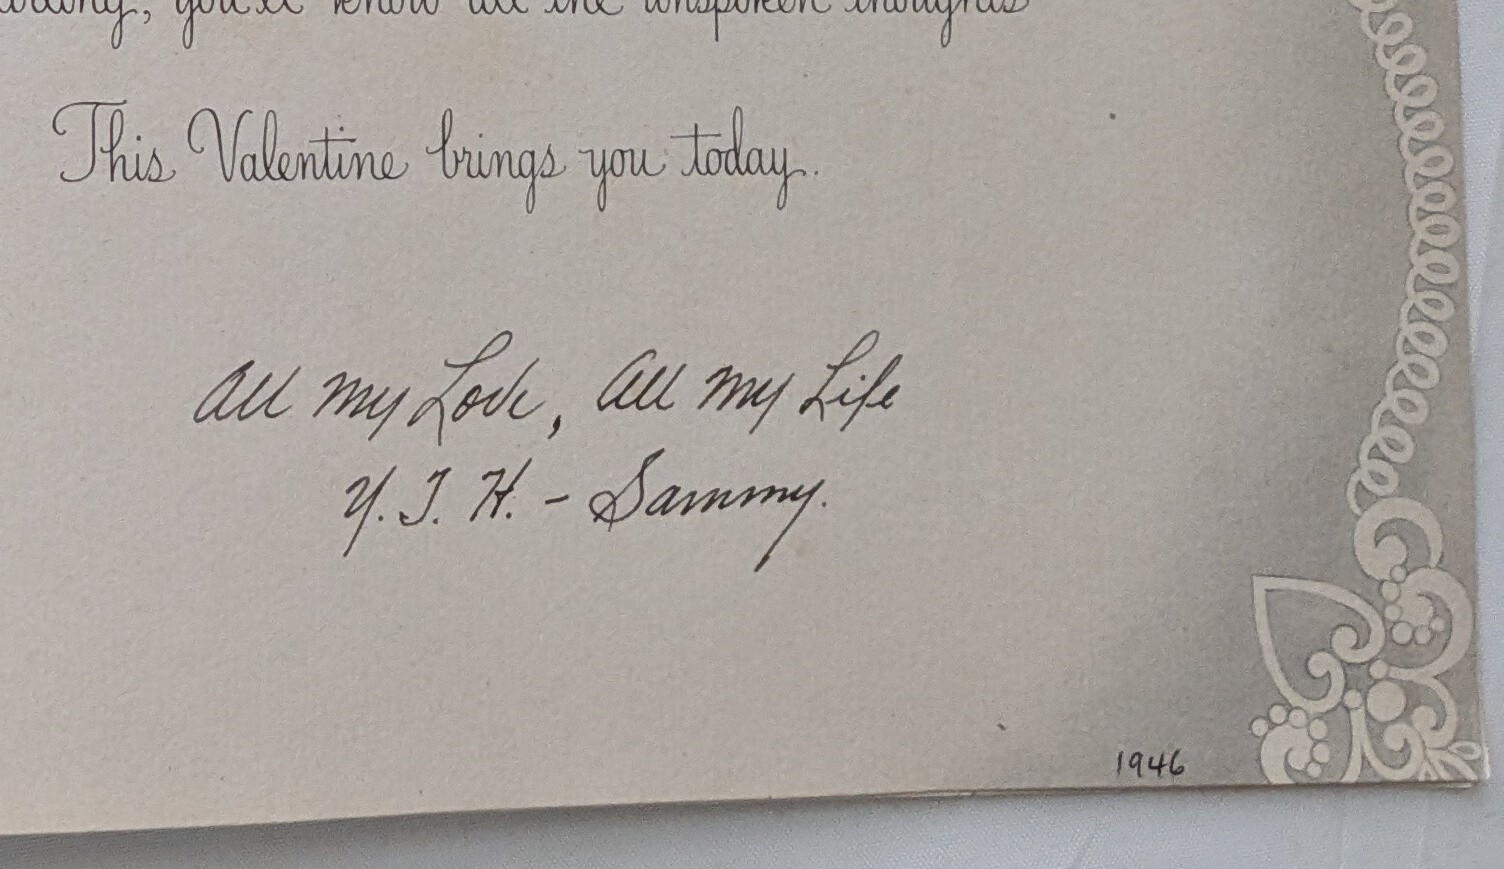 you'll know all the unspoken thoughts
This Valentine brings you today.
All my Love, All my Life
Y. T. H. - Sammy.
1946